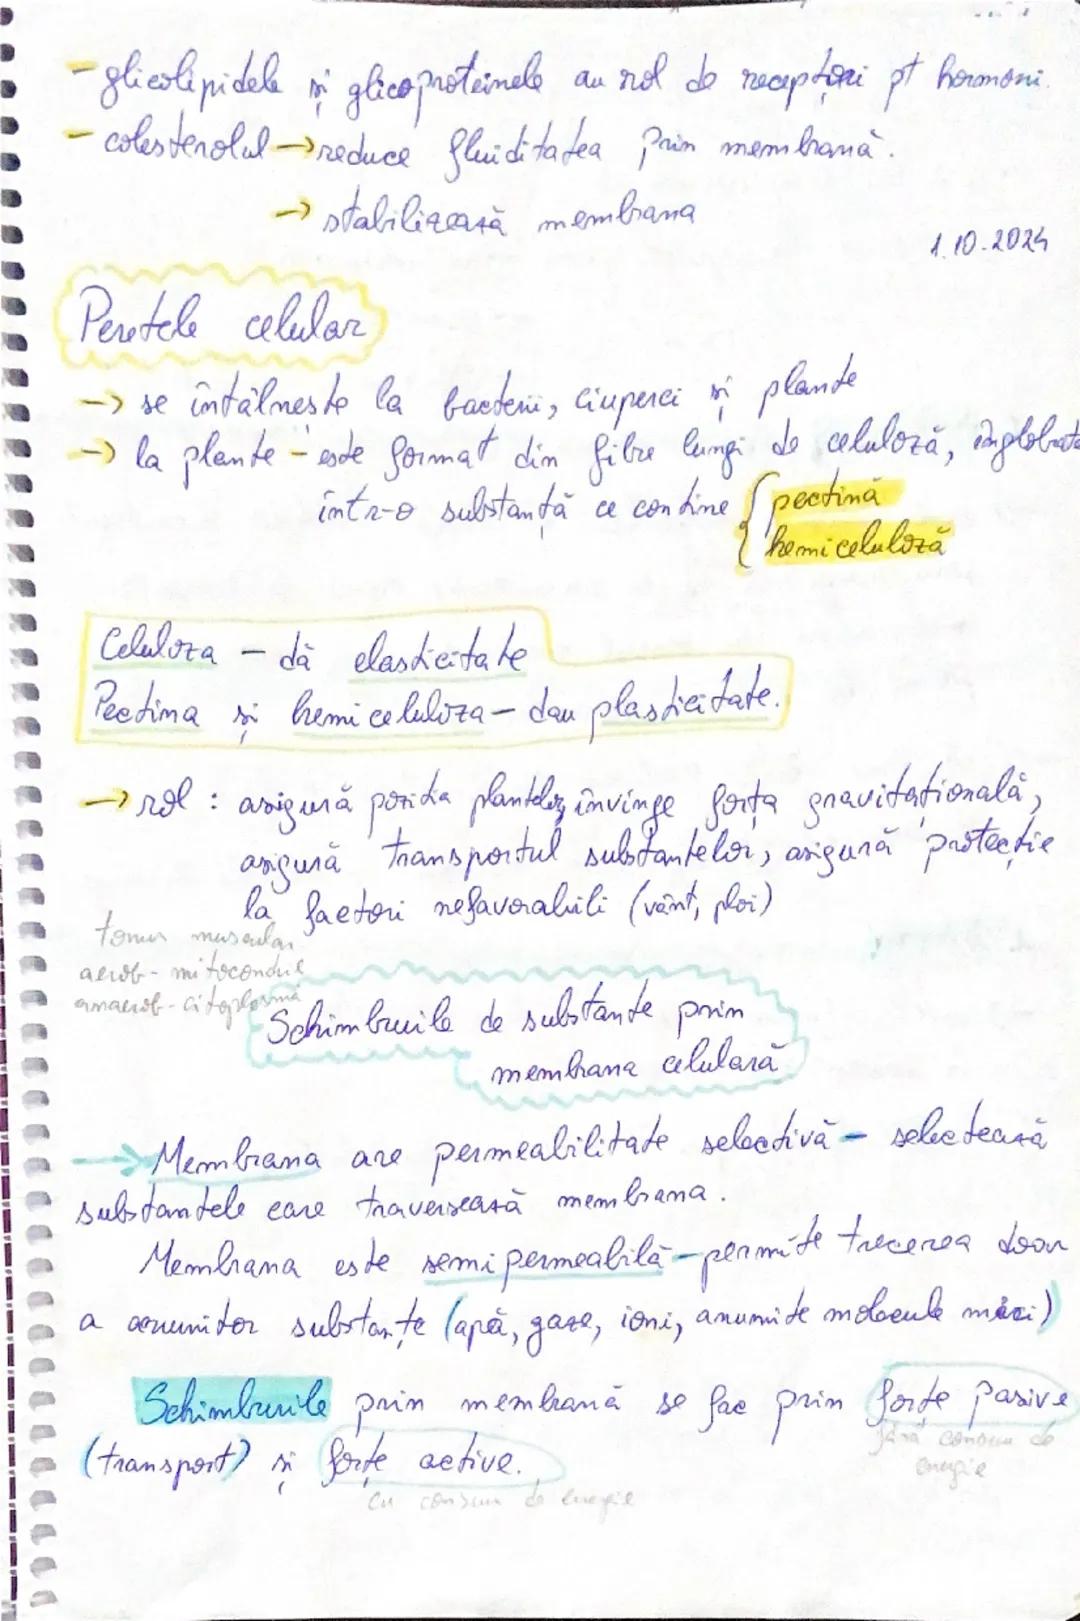 - glicolipidele și glicoproteinele au rol de receptori pt hormoni.
- colesterolul → reduce fluiditatea prin membrană.
→ stabilizează membrana
1.10.2024
Peretele celular
→ se întâlnește la bacterii, ciuperci și plante
→ la plante - este format din fibre lungi de celuloză, înglobate
într-o substanță ce conține { pectină
hemiceluloză
Celuloza - dă elasticitate
Pectina și hemiceluloza - dau plasticitate.
→ rol : asigură poziția plantelor, învinge forța gravitațională,
asigură transportul substanțelor, asigură protecție
la factori nefavorabili (vânt, ploi)
tonus muscular
aerob - mitocondrie
anaerob - citoplasmă
Schimburile de substanțe prin
membrana celulară
→ Membrana are permeabilitate selectivă - selectează
substanțele care traversează membrana.
Membrana este semipermeabilă - permite trecerea doar
a anumitor substanțe (apă, gaze, ioni, anumite molecule mici)
Schimburile prin membrană se fac prin forțe pasive
fără consum de
energie
(transport) și forțe active.
cu consum de energie